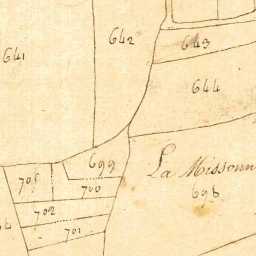 642
643
641
644
699
La Missonn
705
700
698
702
701